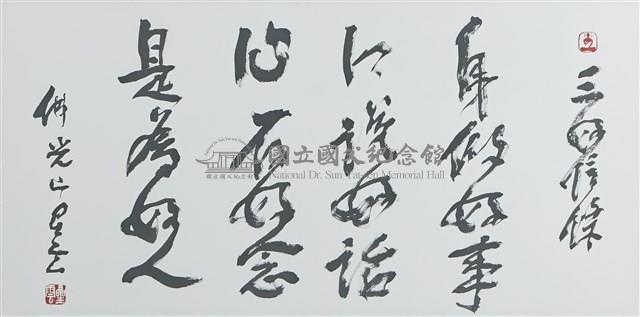 三好信條
身做好事
口說好話
心存好念
是為好人
佛光山星雲
國立國父紀念館
National Dr. Sun Yat-sen Memorial Hall